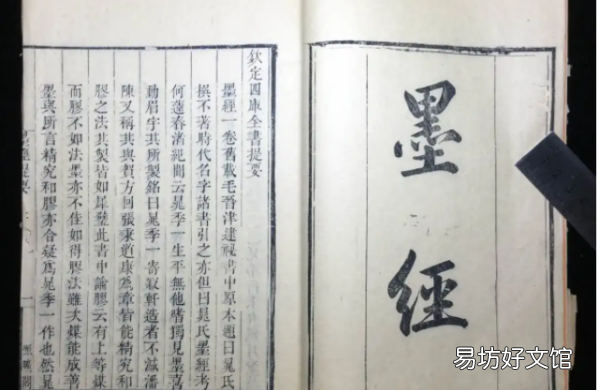 墨經
欽定四庫全書提要
墨經一卷舊載毛晉津逮祕書中原本題曰晁氏
撰不著時代名字諸書引之亦但曰晁氏墨經考
何薳春渚紀聞云晁季一生平無他嗜獨見墨喜
動眉宇其所製銘曰晁季一寄寂軒造者不減潘
陳又稱其與賀方回張秉道康為章皆能精究和
膠之法其製皆如犀璧此書中論膠云有上等煤
而膠不如法墨亦不佳如得膠法雖次煤能成善
墨與所言精究和膠亦合疑爲晁季一作也然晁
易坊好文馆